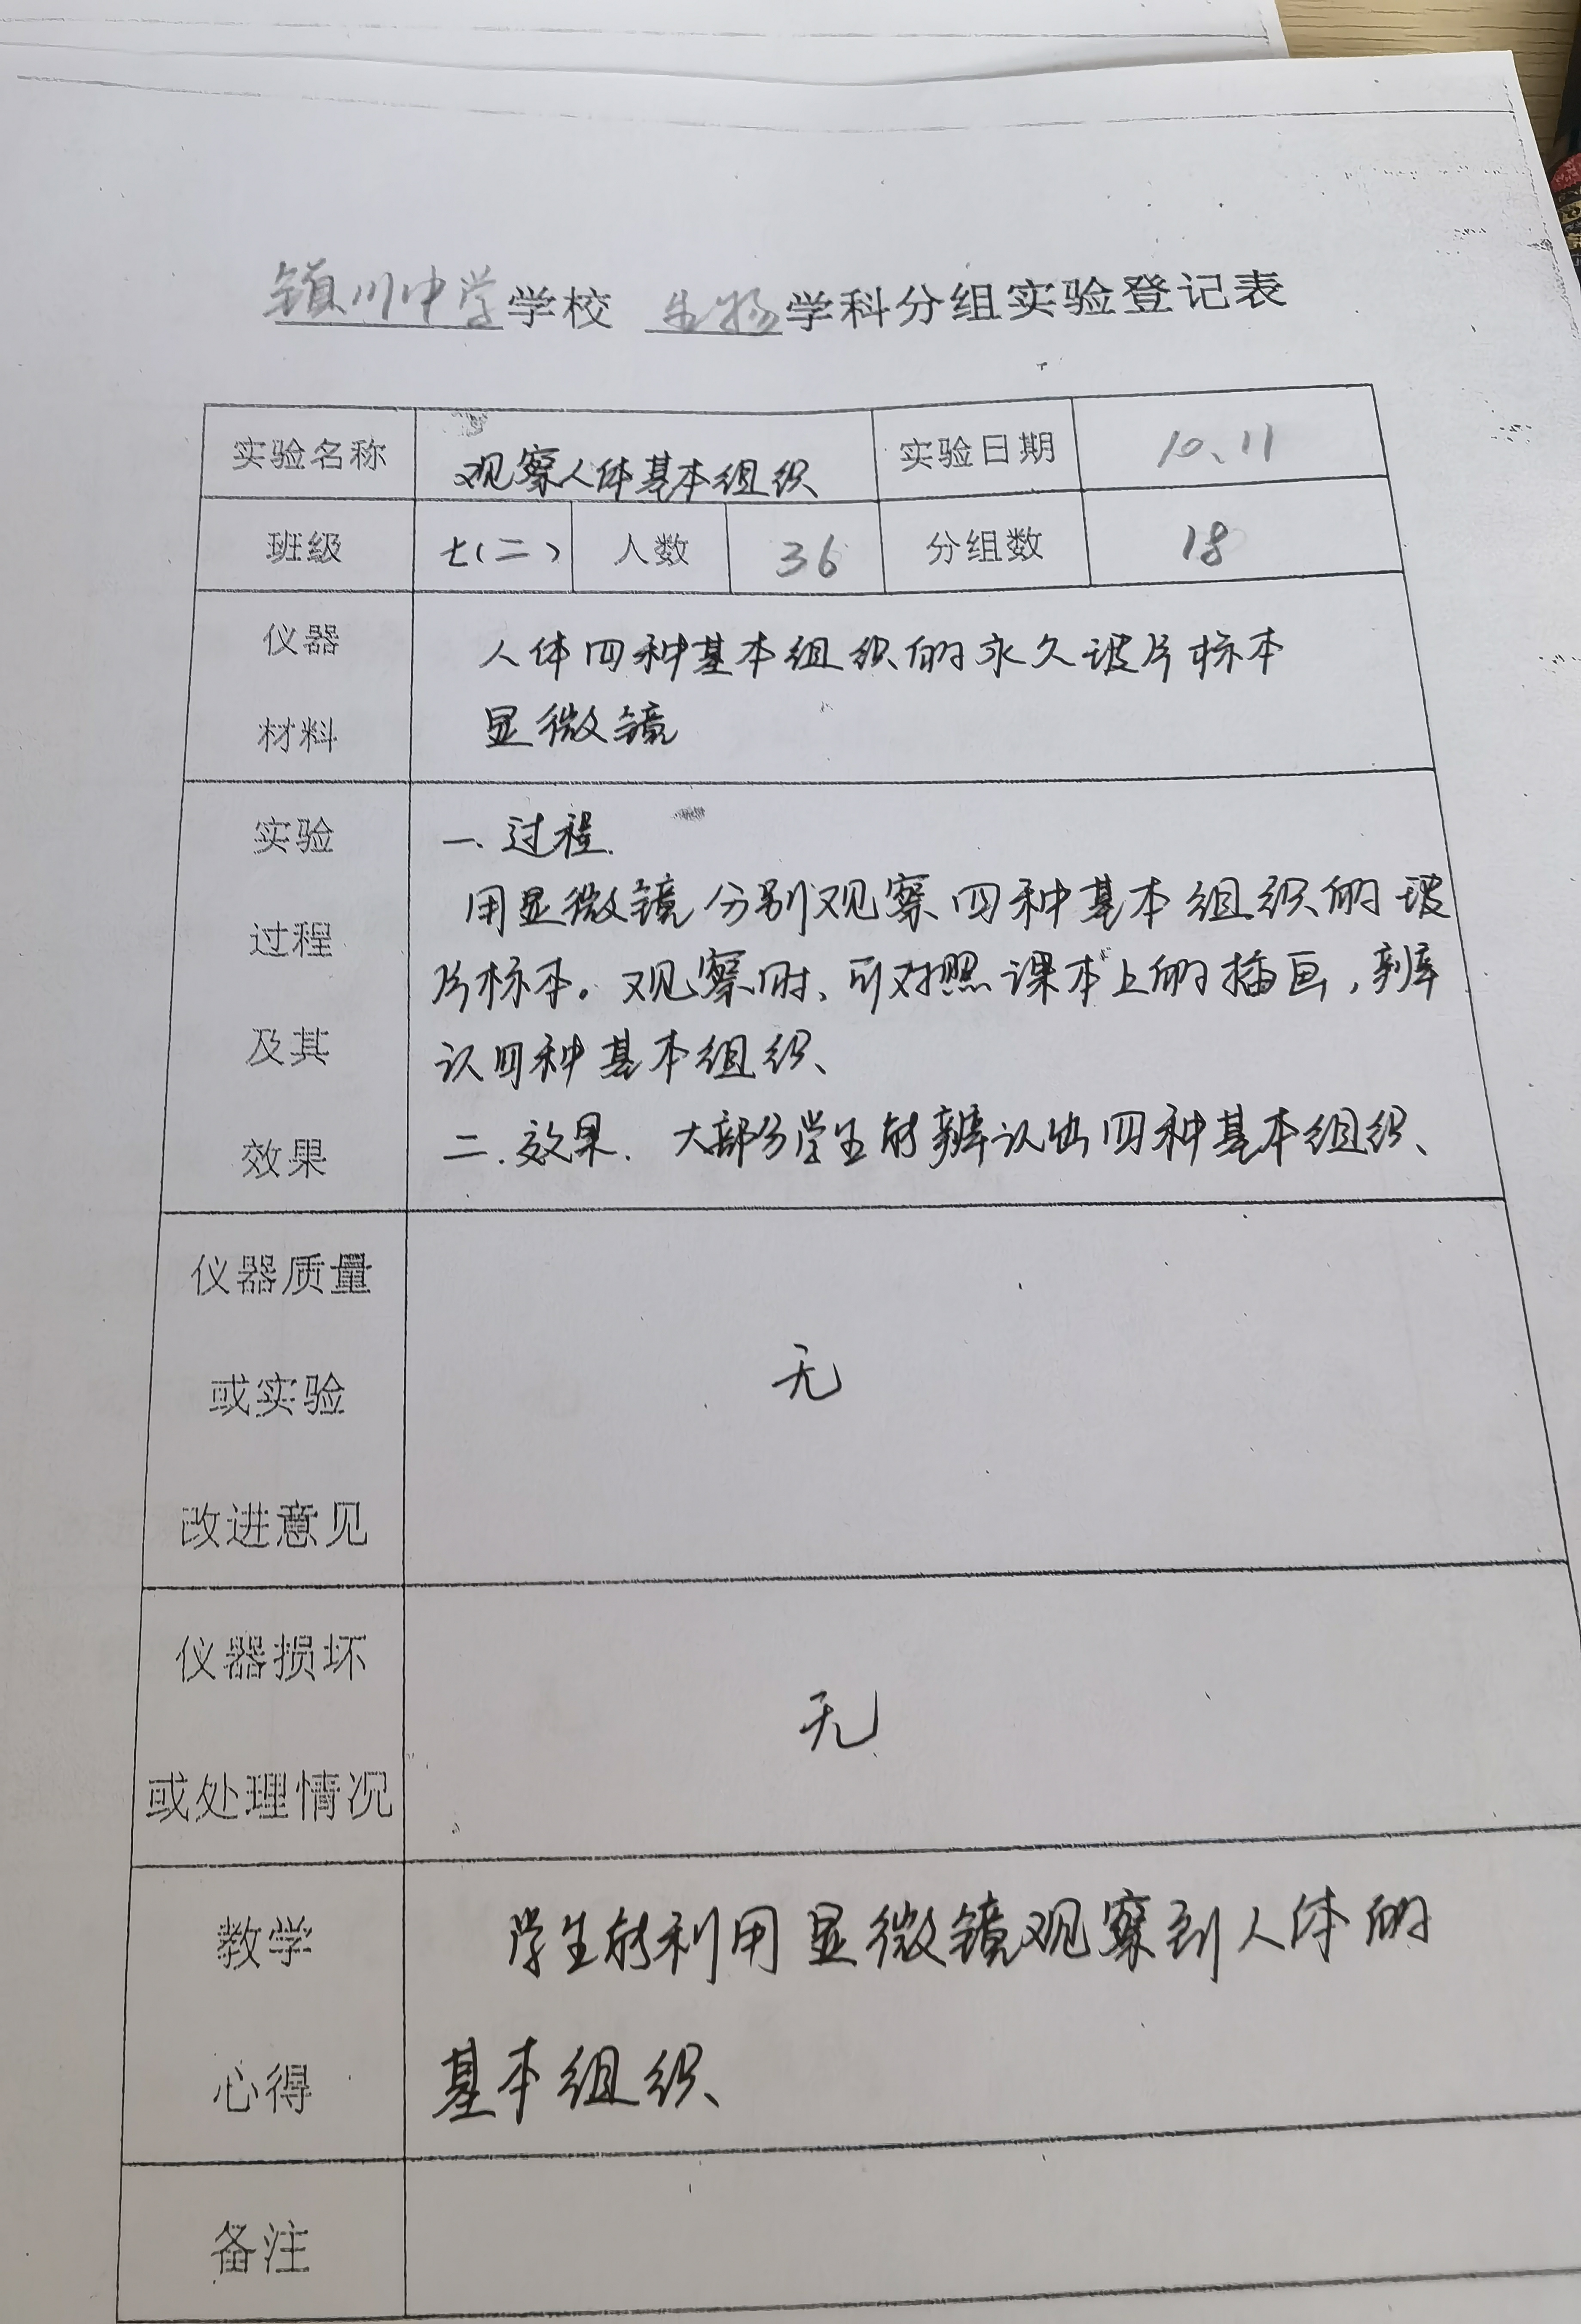 镇川中学学校 生物学科分组实验登记表
实验名称 观察人体基本组织 实验日期 10、11
班级 七(二) 人数 36 分组数 18
仪器 人体四种基本组织的永久玻片标本
材料 显微镜
实验 一、过程.
过程 用显微镜分别观察四种基本组织的玻
片标本。观察时、可对照课本上的插画,辨
及其 认四种基本组织、
效果 二.效果. 大部分学生能辨认出四种基本组织、
仪器质量
或实验 无
改进意见
仪器损坏
无
或处理情况
教学 学生能利用显微镜观察到人体的
心得 基本组织、
备注